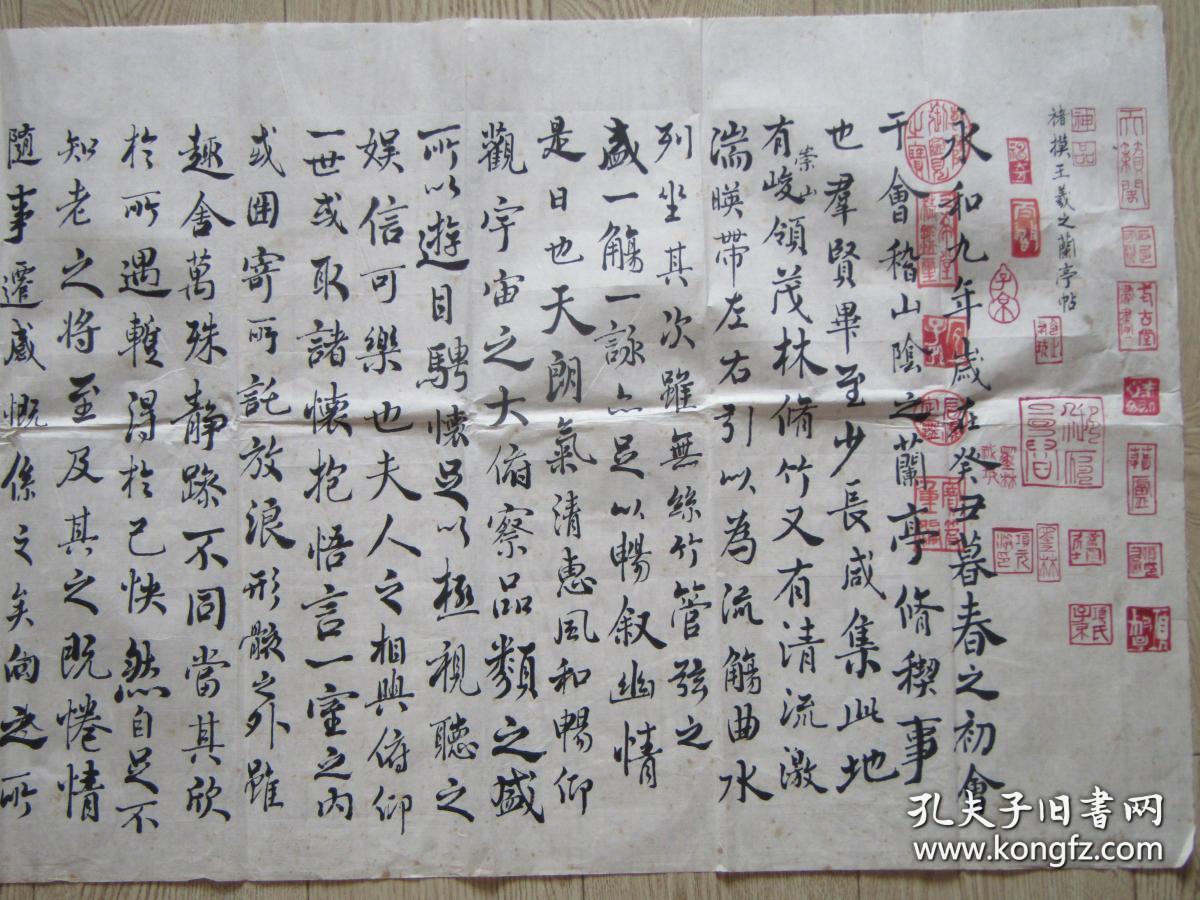 褚摸王羲之蘭亭帖
神品
天籟閣
子京
永和九年歲在癸丑暮春之初會
于會稽山陰之蘭亭脩稧事
也羣賢畢至少長咸集此地
有峻領茂林脩竹又有清流激
崇山
湍暎帶左右引以為流觴曲水
列坐其次雖無絲竹管弦之
盛一觴一詠亦足以暢叙幽情
是日也天朗氣清惠風和暢仰
觀宇宙之大俯察品類之盛
所以遊目騁懷足以極視聽之
娛信可樂也夫人之相與俯仰
一世或取諸懷抱悟言一室之內
或因寄所託放浪形骸之外雖
趣舍萬殊静躁不同當其欣
於所遇暫得於己快然自足不
知老之將至及其之既惓情
隨事遷感慨係之矣向之所
孔夫子旧书网
www.kongfz.com